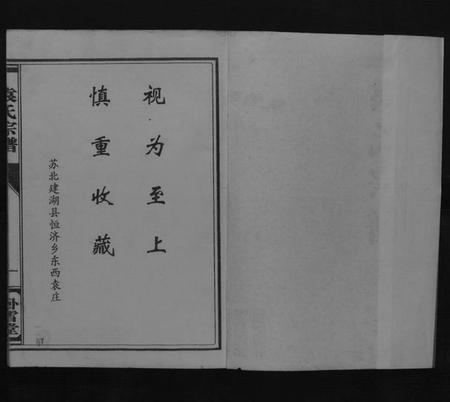 视为至上
慎重收藏
苏北建湖县恒济乡东西袁庄
袁氏宗谱
卧雪堂